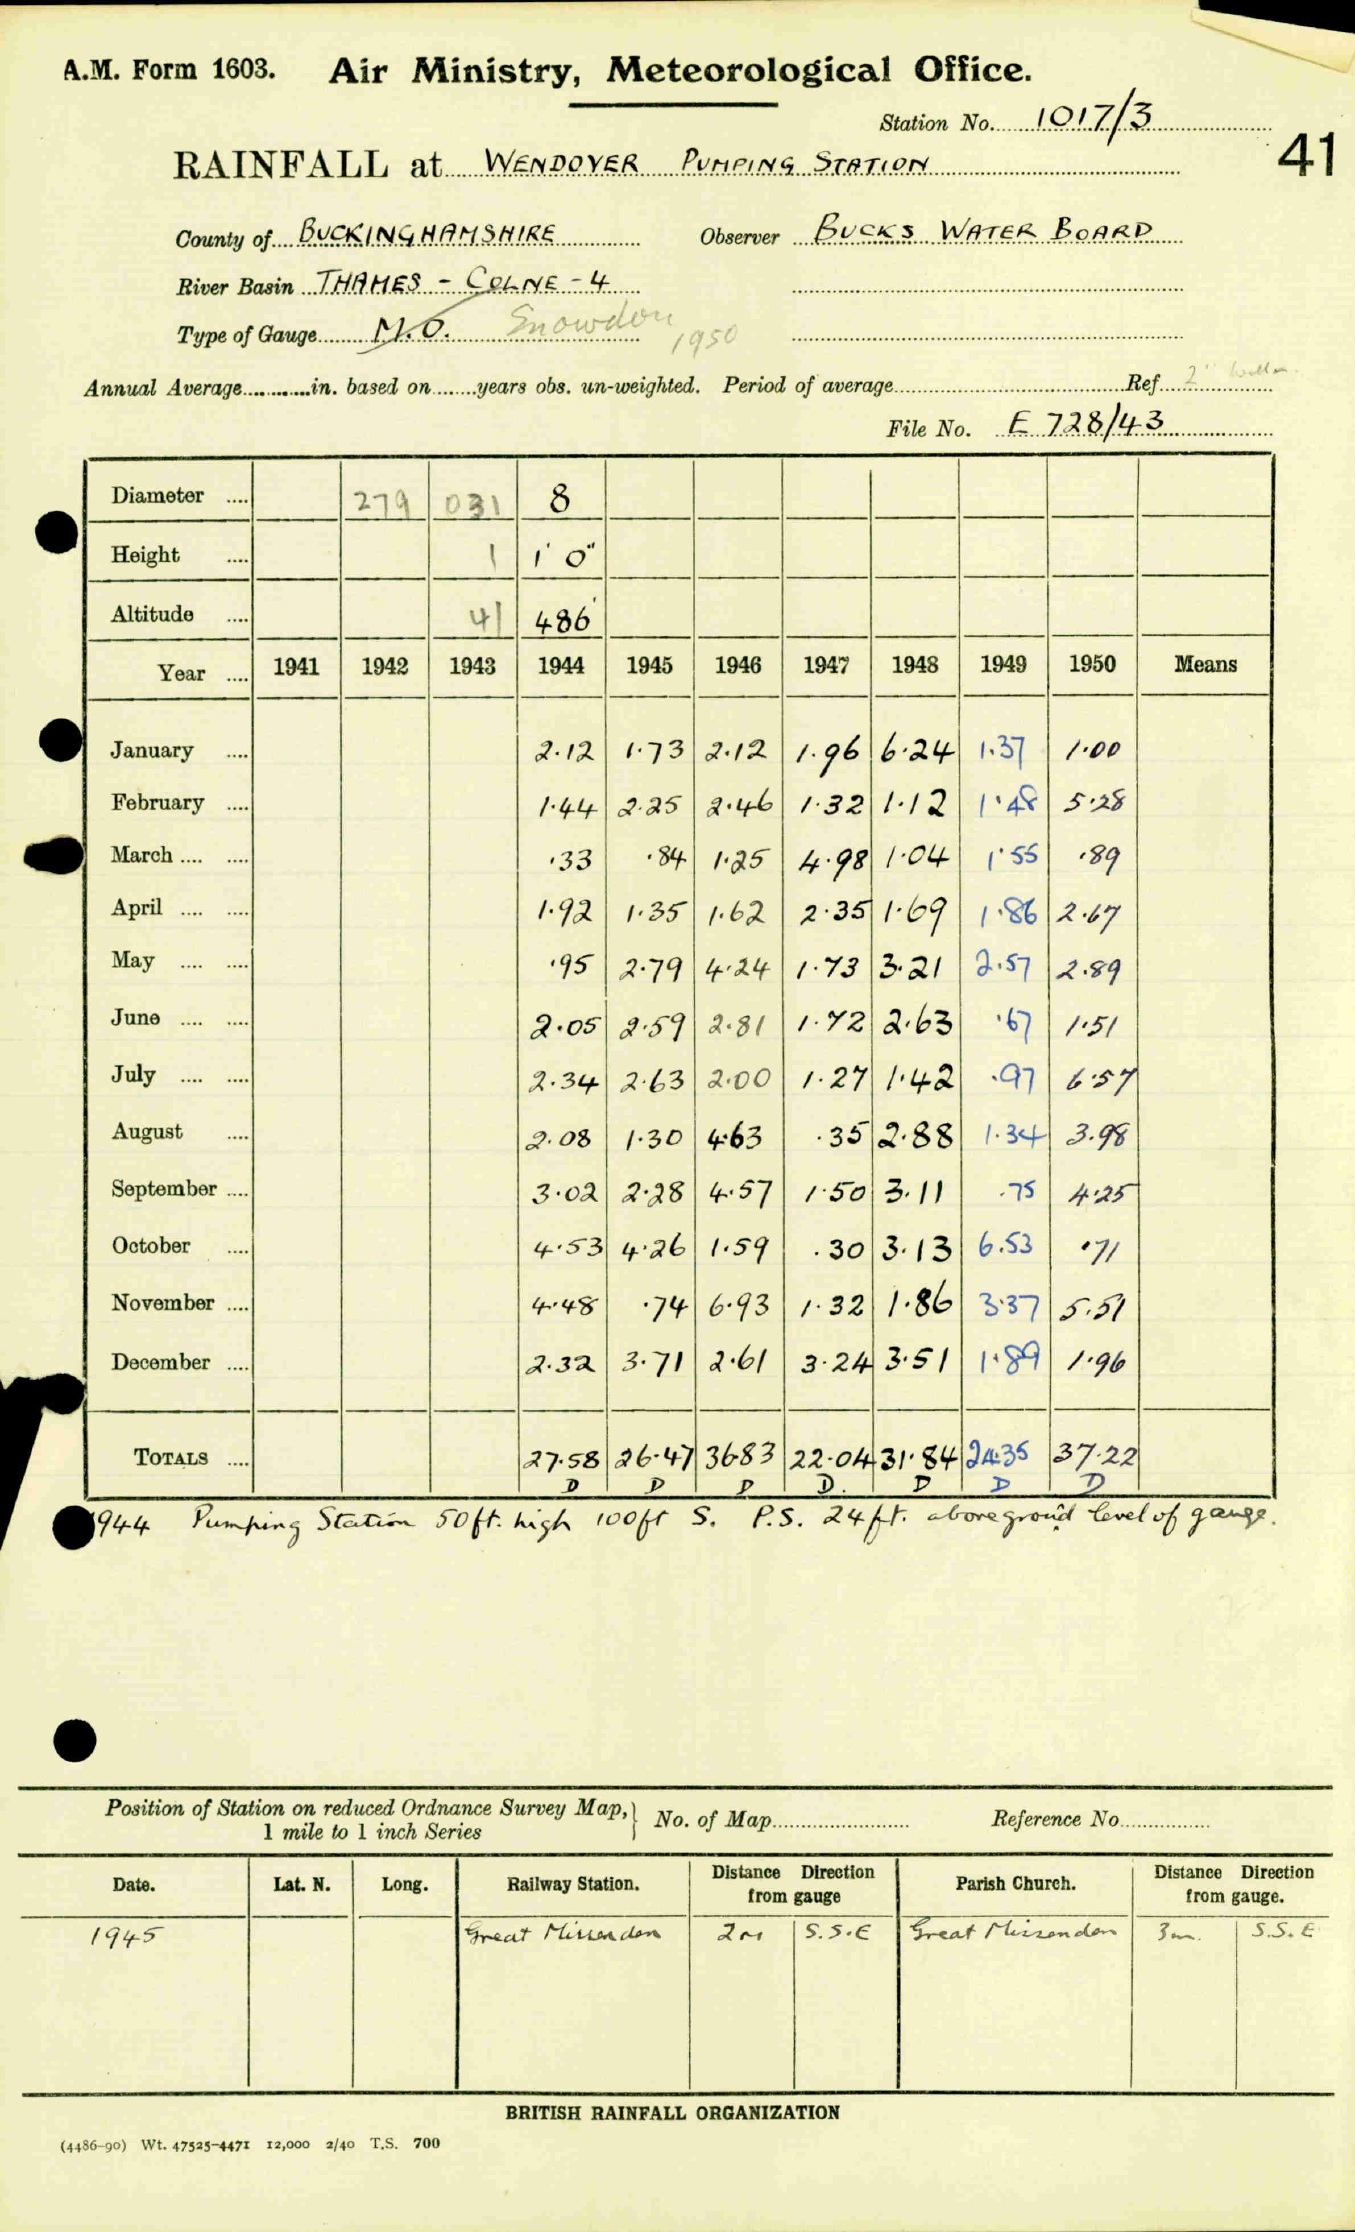 A.M. Form 1603. Air Ministry, Meteorological Office.
Station No. 1017/3
41
RAINFALL at WENDOVER PUMPING STATION
County of BUCKINGHAMSHIRE Observer BUCKS WATER BOARD
River Basin THAMES - COLNE - 4
Type of Gauge M.O. Snowdon 1950
Annual Average in. based on years obs. un-weighted. Period of average Ref 2"
File No. E 728/43
Diameter .... 279 031 8
Height .... 1 1' 0"
Altitude .... 41 486'
Year .... 1941 1942 1943 1944 1945 1946 1947 1948 1949 1950 Means
January .... 2.12 1.73 2.12 1.96 6.24 1.37 1.00
February .... 1.44 2.25 2.46 1.32 1.12 1.48 5.28
March .... .... .33 .84 1.25 4.98 1.04 1.55 .89
April .... .... 1.92 1.35 1.62 2.35 1.69 1.86 2.67
May .... .... .95 2.79 4.24 1.73 3.21 2.57 2.89
June .... .... 2.05 2.59 2.81 1.72 2.63 .67 1.51
July .... .... 2.34 2.63 2.00 1.27 1.42 .97 6.57
August .... 2.08 1.30 4.63 .35 2.88 1.34 3.98
September .... 3.02 2.28 4.57 1.50 3.11 .75 4.25
October .... 4.53 4.26 1.59 .30 3.13 6.53 .71
November .... 4.48 .74 6.93 1.32 1.86 3.37 5.51
December .... 2.32 3.71 2.61 3.24 3.51 1.89 1.96
TOTALS .... 27.58 26.47 36.83 22.04 31.84 24.35 37.22
D D D D. D D D
1944 Pumping Station 50ft. high 100ft S. P.S. 24ft. above ground level of gauge.
Position of Station on reduced Ordnance Survey Map,} No. of Map Reference No.
1 mile to 1 inch Series
Date. Lat. N. Long. Railway Station. Distance Direction from gauge Parish Church. Distance Direction from gauge.
1945 Great Missenden 2m S.S.E Great Missenden 3m. S.S.E
BRITISH RAINFALL ORGANIZATION
(4486-90) Wt. 47525-4471 12,000 2/40 T.S. 700